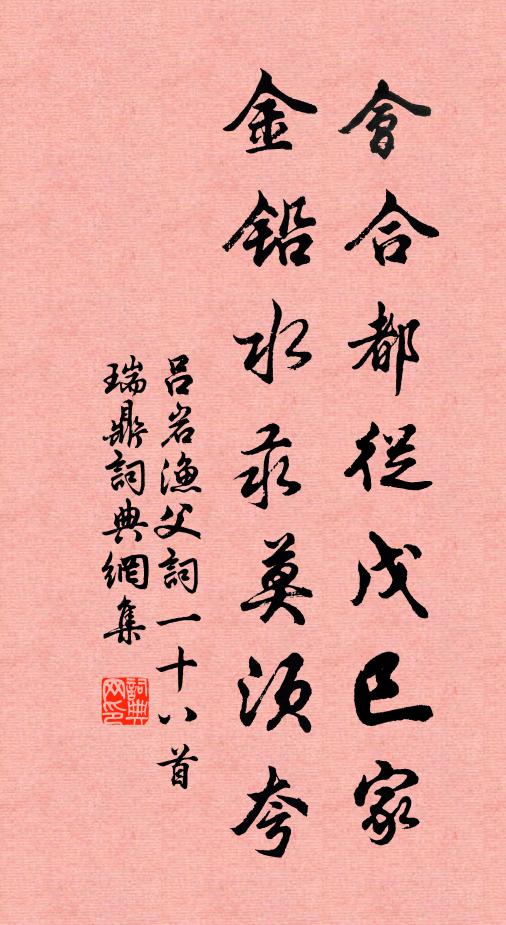 會合都從戊巳家
金鉛水汞莫須夸
呂岩漁父詞一十八首
瑞鼎詞典網集
詞典
网印